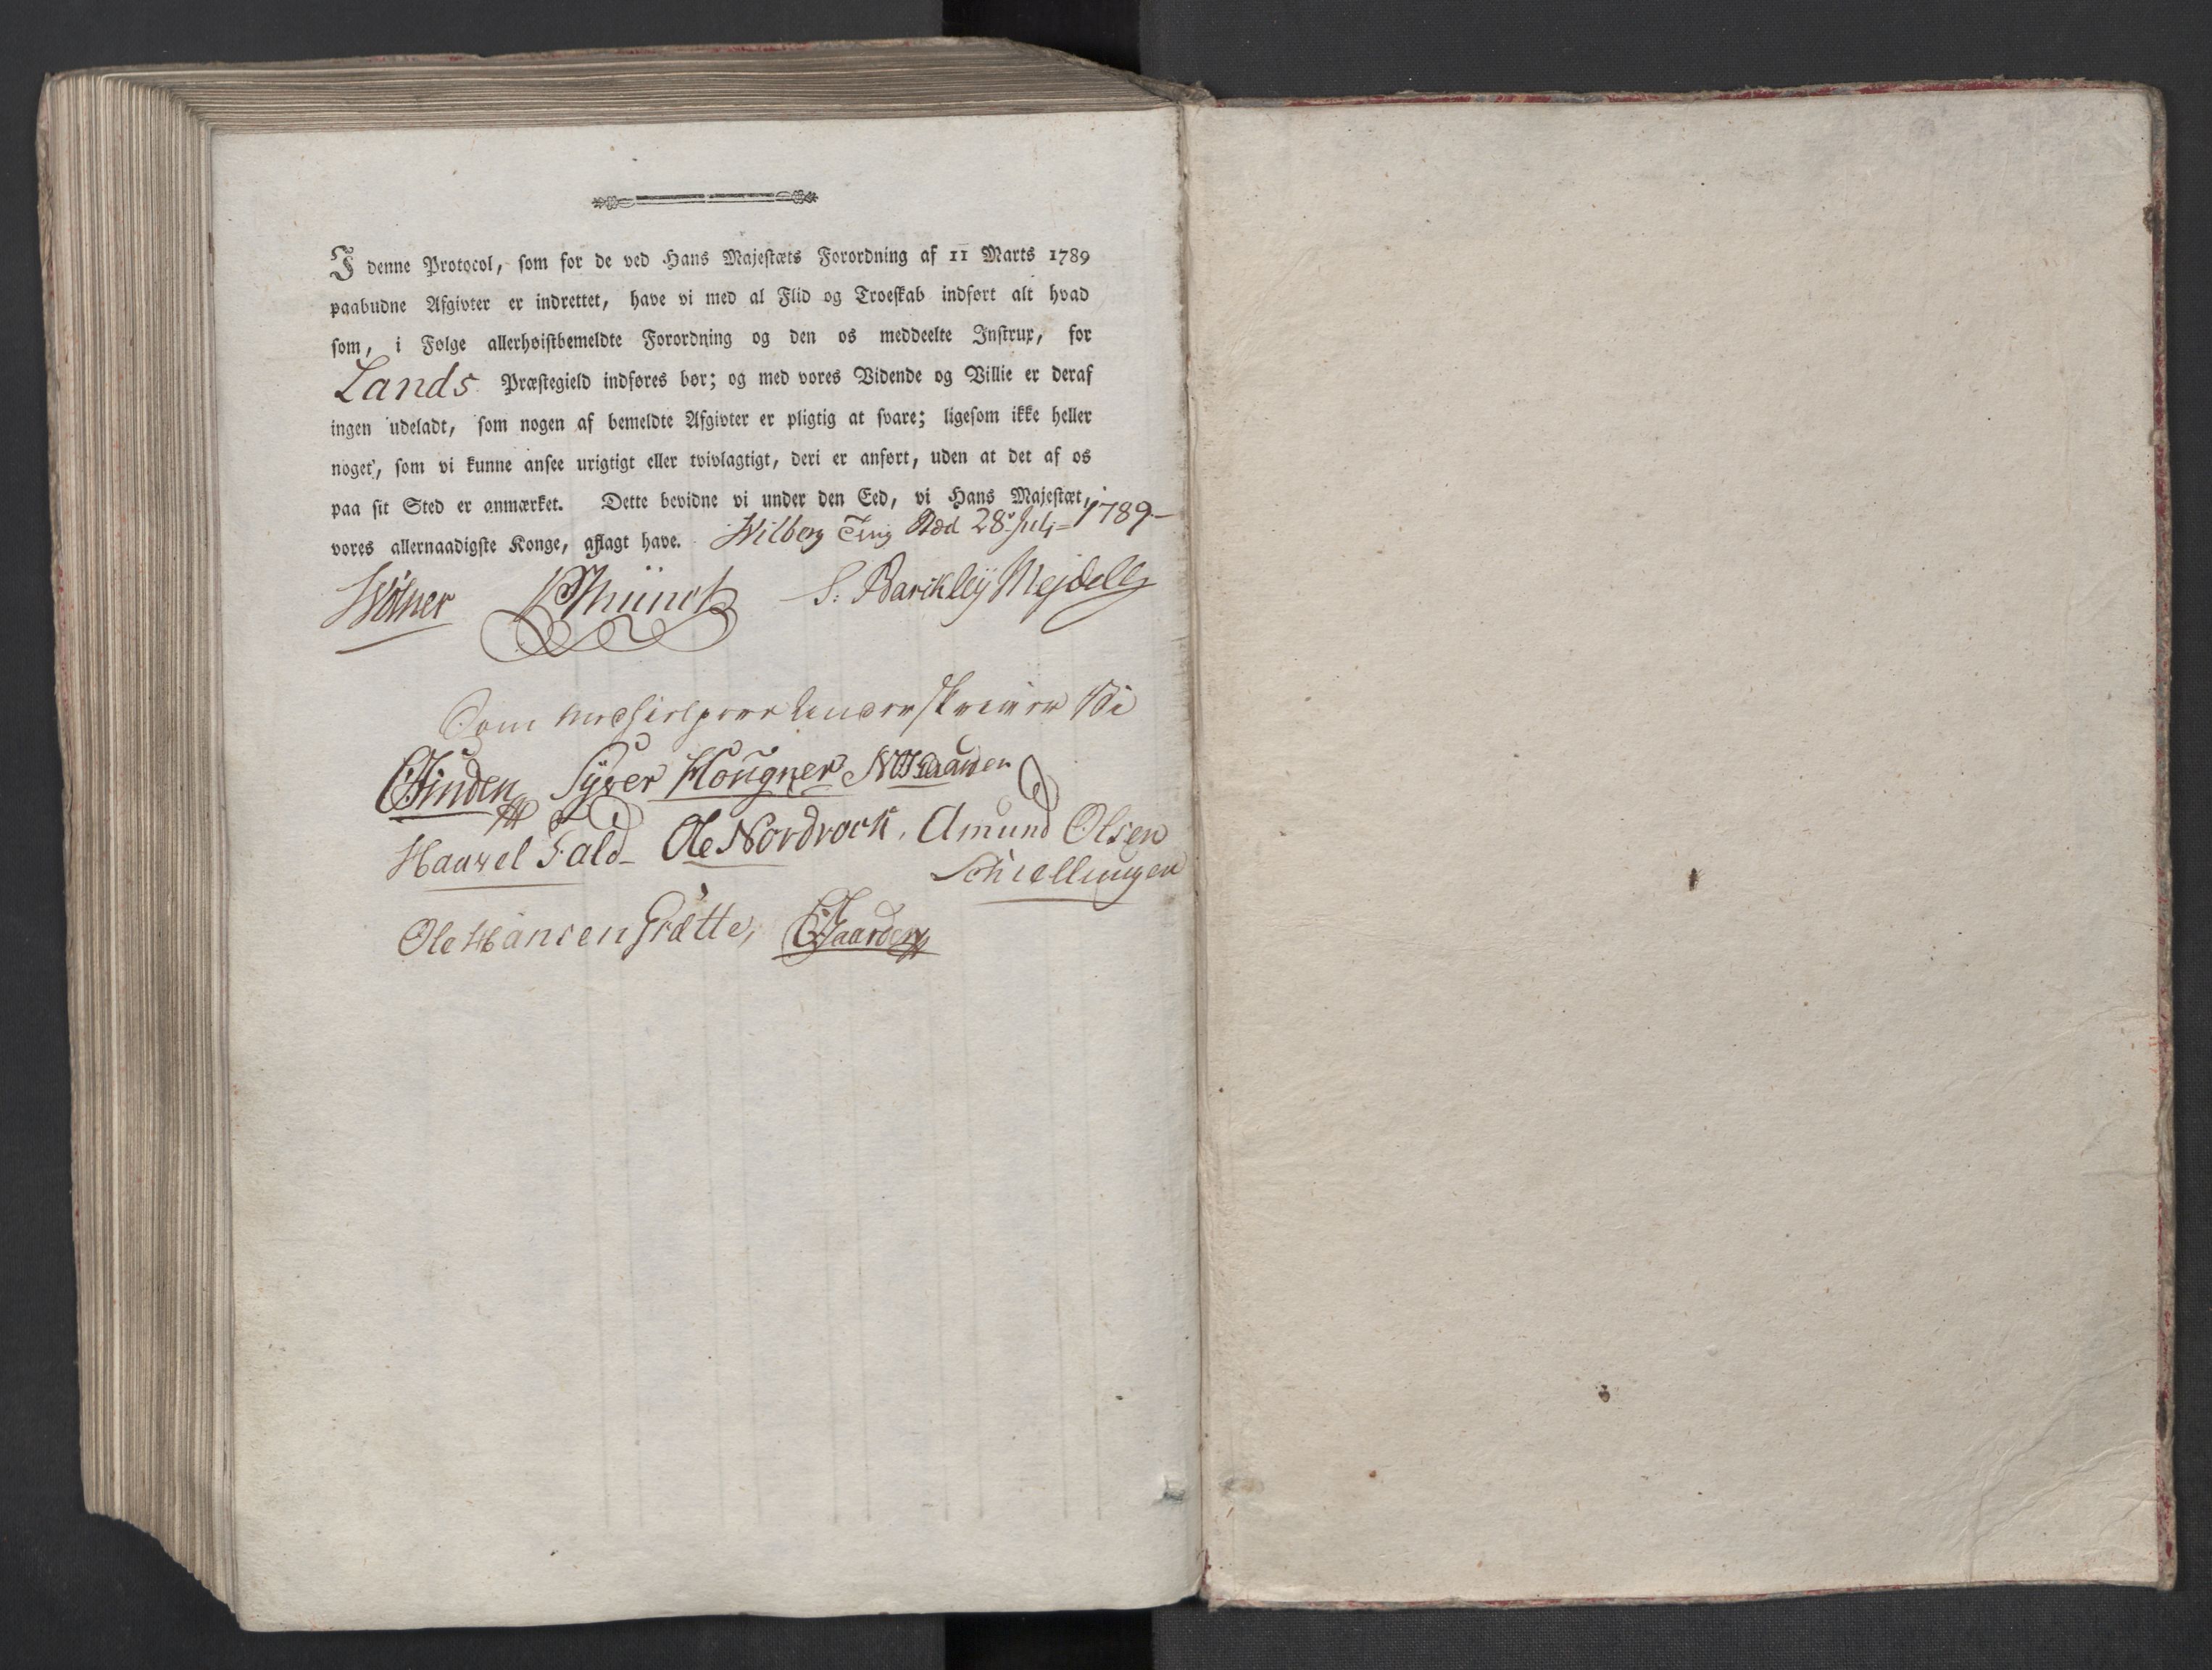 I denne Protocol, som for de ved Hans Majestæts Forordning af 11 Marts 1789
paabudne Afgivter er indrettet, have vi med al Flid og Troeskab indført alt hvad
som, i Følge allerhøistbemeldte Forordning og den os meddeelte Instrux, for
Lands Præstegield indføres bør; og med vores Vidende og Villie er deraf
ingen udeladt, som nogen af bemeldte Afgivter er pligtig at svare; ligesom ikke heller
noget, som vi kunne ansee urigtigt eller tvivlagtigt, deri er anført, uden at det af os
paa sit Sted er anmærket. Dette bevidne vi under den Eed, vi Hans Majestæt,
vores allernaadigste Konge, aflagt have. Wilberg Ting Sted 28 Julj 1789
Wölner Münch S: Barckleÿ Mejdell
Som Medhielpere Underskriver Vi
Sÿver Hougner
Haavel Fald Ole Nordrock, Amund Olsen
Schiellungen
Ole Hansen Grætte,